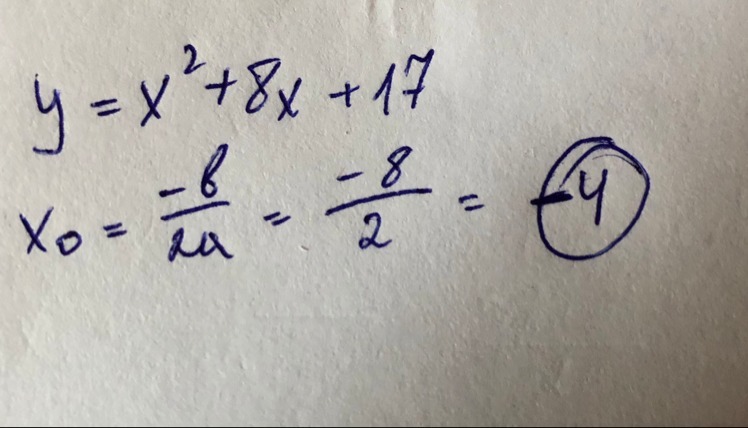 y = x² + 8x + 17
x₀ = -b/2a = -8/2 = -4